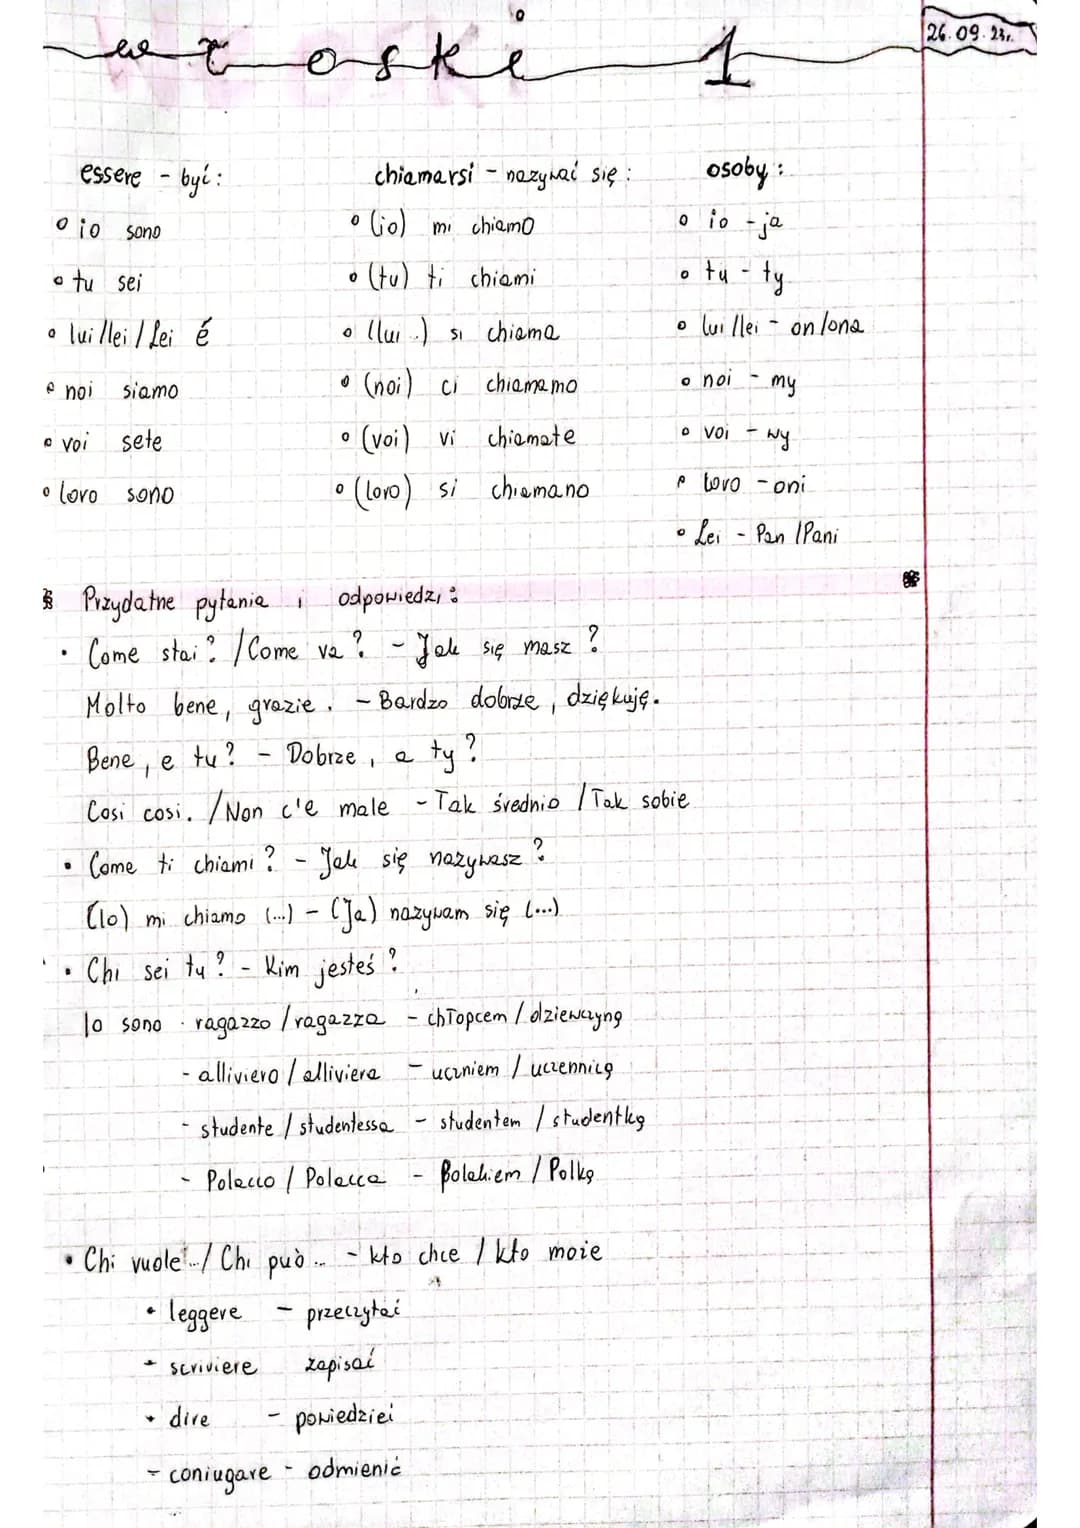 włoski 1
26.09.23r.
essere - być:
io sono
tu sei
lui/lei/Lei é
noi siamo
voi sete
loro sono
chiamarsi - nazywać się:
(io) mi chiamo
(tu) ti chiami
(lui..) si chiama
(noi) ci chiamamo
(voi) vi chiamate
(loro) si chiamano
osoby:
io - ja
tu - ty
lui/lei - on/ona
noi - my
voi - wy
loro - oni
Lei - Pan/Pani
Przydatne pytania i odpowiedzi:
• Come stai? / Come va? - Jak się masz?
Molto bene, grazie. - Bardzo dobrze, dziękuję.
Bene, e tu? - Dobrze, a ty?
Cosi cosi. / Non c'e male - Tak średnio / Tak sobie
• Come ti chiami? - Jak się nazywasz?
(Io) mi chiamo (...) - (Ja) nazywam się (...)
• Chi sei tu? - Kim jesteś?
Io sono - ragazzo / ragazza - chłopcem / dziewczyną
- alliviero / alliviera - uczniem / uczennicą
- studente / studentessa - studentem / studentką
- Polacco / Polacca - Polakiem / Polką
• Chi vuole... / Chi può... - kto chce / kto może
• leggere - przeczytać
- scriviere zapisać
• dire - powiedzieć
- coniugare - odmienić